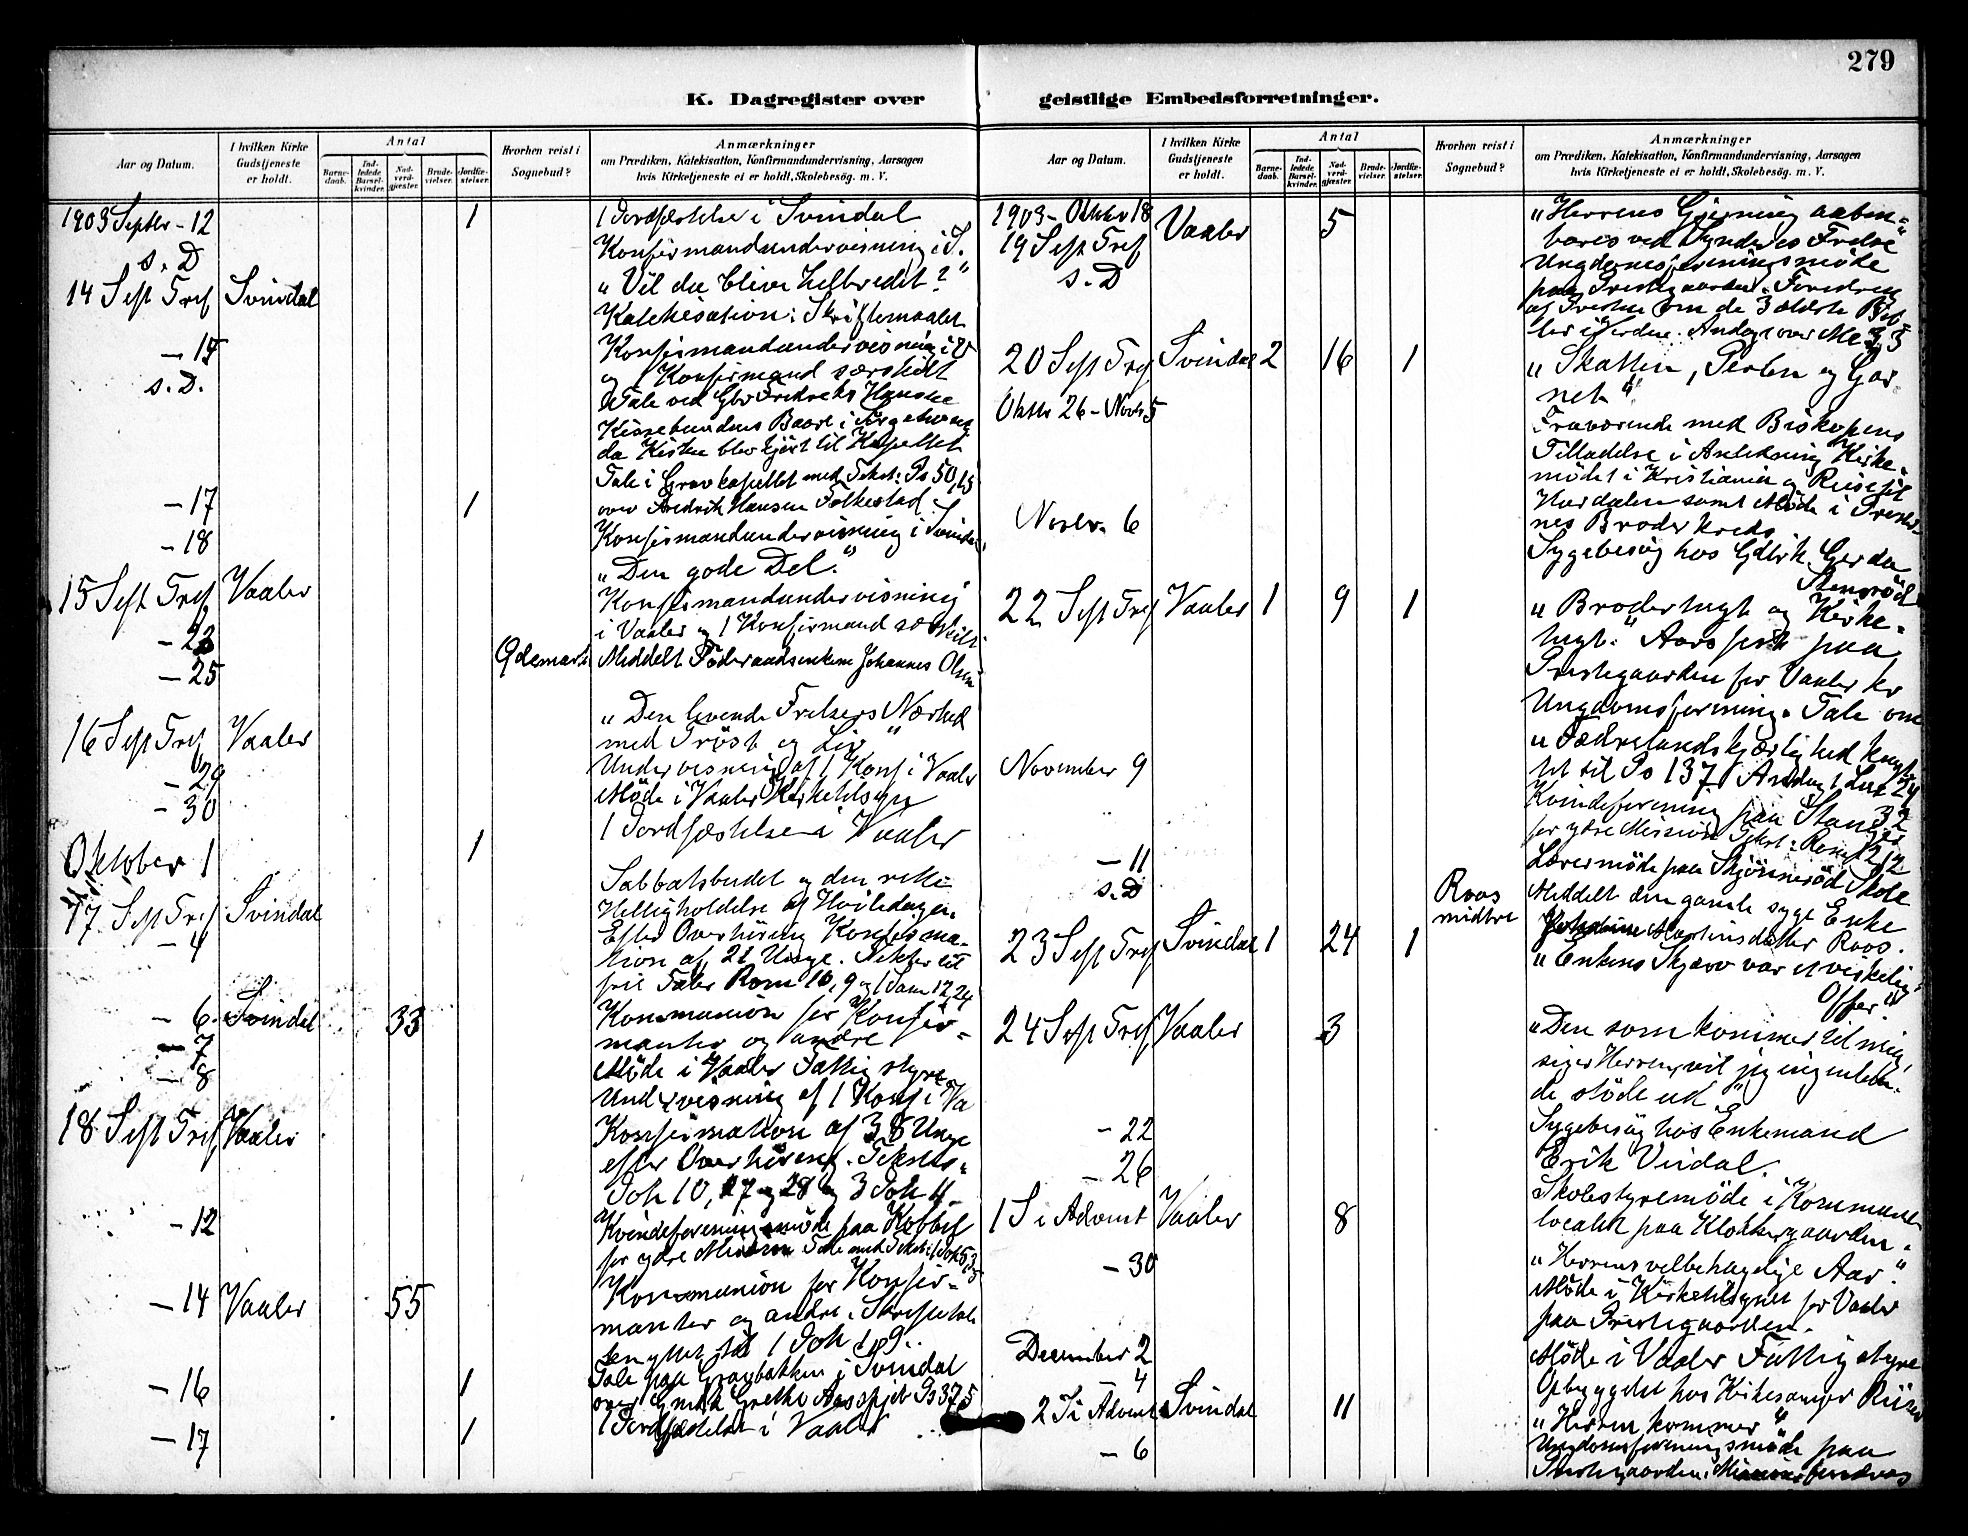 279
K. Dagregister over geistlige Embedsforretninger.
Aar og Datum.
I hvilken Kirke Gudstjeneste er holdt.
Antal
Barne-daab.
Ind-ledede Barsel-kvinder.
Nad-verd-gjæster.
Brude-vielser.
Jordfæ-stelser.
Hvorhen reist i Sognebud?
Anmærkninger
om Prædiken, Katekisation, Konfirmandundervisning, Aarsagen
hvis Kirketjeneste ei er holdt, Skolebesøg. m. V.
1903 Septbr - 12 1 1 Jordfæstelse i Svindal
s. D Konfirmandundervisning i S.
14 Sept Tref Svindal "Vil du blive helbredet?"
Katekisation: Skriftemaalet
- 15 Konfirmandundervisning i V
s. D. og 1 Konfirmand særskilt
Tale ved
da Kisten blev kjört til Kapellet
Tale i Gravkapellet med Tekst: Ps 50,15
- 17 1 over Fredrik Hansen Folkestad
- 18 Konfirmandundervisning i Svindal
15 Sept Tref Vaaler "Den gode Del."
Konfirmandundervisning
- 23 i Vaaler og 1 Konfirmand særskilt
- 25 Meddelt Föderaadsenkem Johannes Olsen
16 Sept Tref Vaaler "Den levende Frelsers Nærhed
med Tröst og Liv"
- 29 Undervisning af 1 Konf i Vaaler
- 30 Möde i Vaaler Kirketilsyn
Oktober 1 1 1 Jordfæstelse i Vaaler
17 Sept Tref Svindal Sabbatsbudet og den rette
Helligholdelse af Hviledagen.
- 4 Efter Overhöring Konfirma-
tion af 21 Unge. Tekster til
fril Taler Rom 10, 9 og 1 Sam 12,24
- 6 Svindal 33 Kommunion for Konfir-
- 7 manter og andre
- 8 Möde i Vaaler Fattigstyre
Undervisning af 1 Konf i Va
18 Sept Tref Vaaler Konfirmation af 38 Unge
efter Overhöring. Tekster
Joh 10, 27 og 28 og 3 Joh 4
- 12 Kvindeforeningsmöde paa Kobbel
for ydre Mission Tale med Tekst 1 Joh 5
- 14 Vaaler 55 Kommunion for Konfir-
manter og andre. Skriftetale
1 Joh 1, 9.
- 16 1 Tale paa Gravbakken i Svindal
over Grethe Aasspjet Ps 37,5
- 17 1 1 Jordfæstelse i Vaaler
Aar og Datum.
I hvilken Kirke Gudstjeneste er holdt.
Antal
Barne-daab.
Ind-ledede Barsel-kvinder.
Nad-verd-gjæster.
Brude-vielser.
Jordfæ-stelser.
Hvorhen reist i Sognebud?
Anmærkninger
om Prædiken, Katekisation, Konfirmandundervisning, Aarsagen
hvis Kirketjeneste ei er holdt, Skolebesøg. m. V.
1903 - Oktbr 18 Vaaler 5 "Herrens Gjerning aaben-
19 Sept Tref bares ved Synderes Frelse"
s. D Ungdomsforeningsmöde
paa Prestegaarden. Foredrag
af Presten om de 3 ældste Bib-
ler i Verden. Andagt over
20 Sept Tref Svindal 2 16 1 "Skatten, Perlen og Gar-
net."
Oktbr 26 - Novbr 5 Fraværende med Biskopens
Tilladelse i Anledning Kirke-
mödet i Kristiania og Reise til
Hardalen samt Möde i Prester-
nes Broderkreds
Novbr. 6 Sygebesög hos Gdbrk. Gerda
Stensröd
22 Sept Tref Vaaler 1 9 1 "Brodertugt og Kirke-
tugt." Aarsfest paa
Prestegaarden for Vaaler kr
Ungdomsforening. Tale om
"Fædrelandskjærlighed knyt-
tet til Ps 137. Andagt Luk 24
November 9 Kvindeforening paa Stanger 32
for ydre Mission Tekst: Rom 12,12
- 11 Lærermöde paa Skjönneröd Skole
s. D Roos midtre Meddelt den gamle syge Enke
Martinsdatter Roos.
23 Sept Tref Svindal 1 24 1 "Enkens Skjærv var et virkelig
Offer."
24 Sept Tref Vaaler 3 "Den som kommer til mig,
siger Herren, vil jeg ingenlun-
de stöde ud"
- 22 Sygebesög hos Enkemand
Erik Vindal.
- 26 Skolestyremöde i Kommune-
localet paa Klokkergaarden.
1 S i Advent Vaaler 8 "Herrens velbehagelige Aar."
- 30 Möde i Kirketilsynet for Vaaler
paa Prestegaarden.
December 2 Möde i Vaaler Fattigstyre
4 Opbyggelse hos Kirkesanger Riiser
2 S i Advent Svindal 11 "Herren kommer"
- 6 Ungdomsforeningsmöde paa
Prestegaarden.